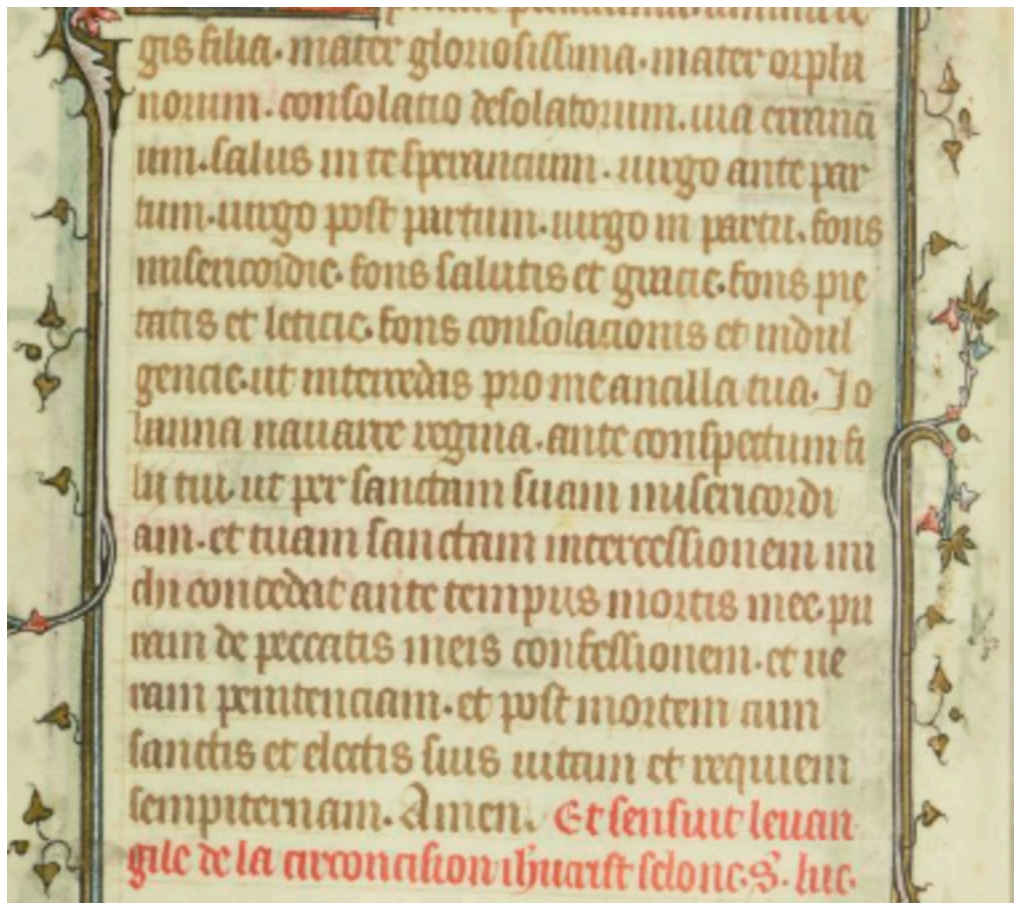 gis filia. mater gloriosissima. mater orpha
norum. consolatio desolatorum. uia erranci
um. salus in te sperancium. uirgo ante par
tum. uirgo post partum. uirgo in partu. fons
misericordie. fons salutis et gracie. fons pie
tatis et leticie. fons consolacionis et indul
gencie. ut intercedas pro me ancilla tua. Jo
hanna nauarre regina. ante conspectum fi
lii tui. ut per sanctam suam misericordi
am. et tuam sanctam intercessionem mi
chi concedat ante tempus mortis mee. pu
ram de peccatis meis confessionem. et ue
ram penitenciam. et post mortem cum
sanctis et electis suis uitam et requiem
sempiternam. Amen. Et sensuit leuan
gile de la circoncision ihucrist selonc. S. luc.